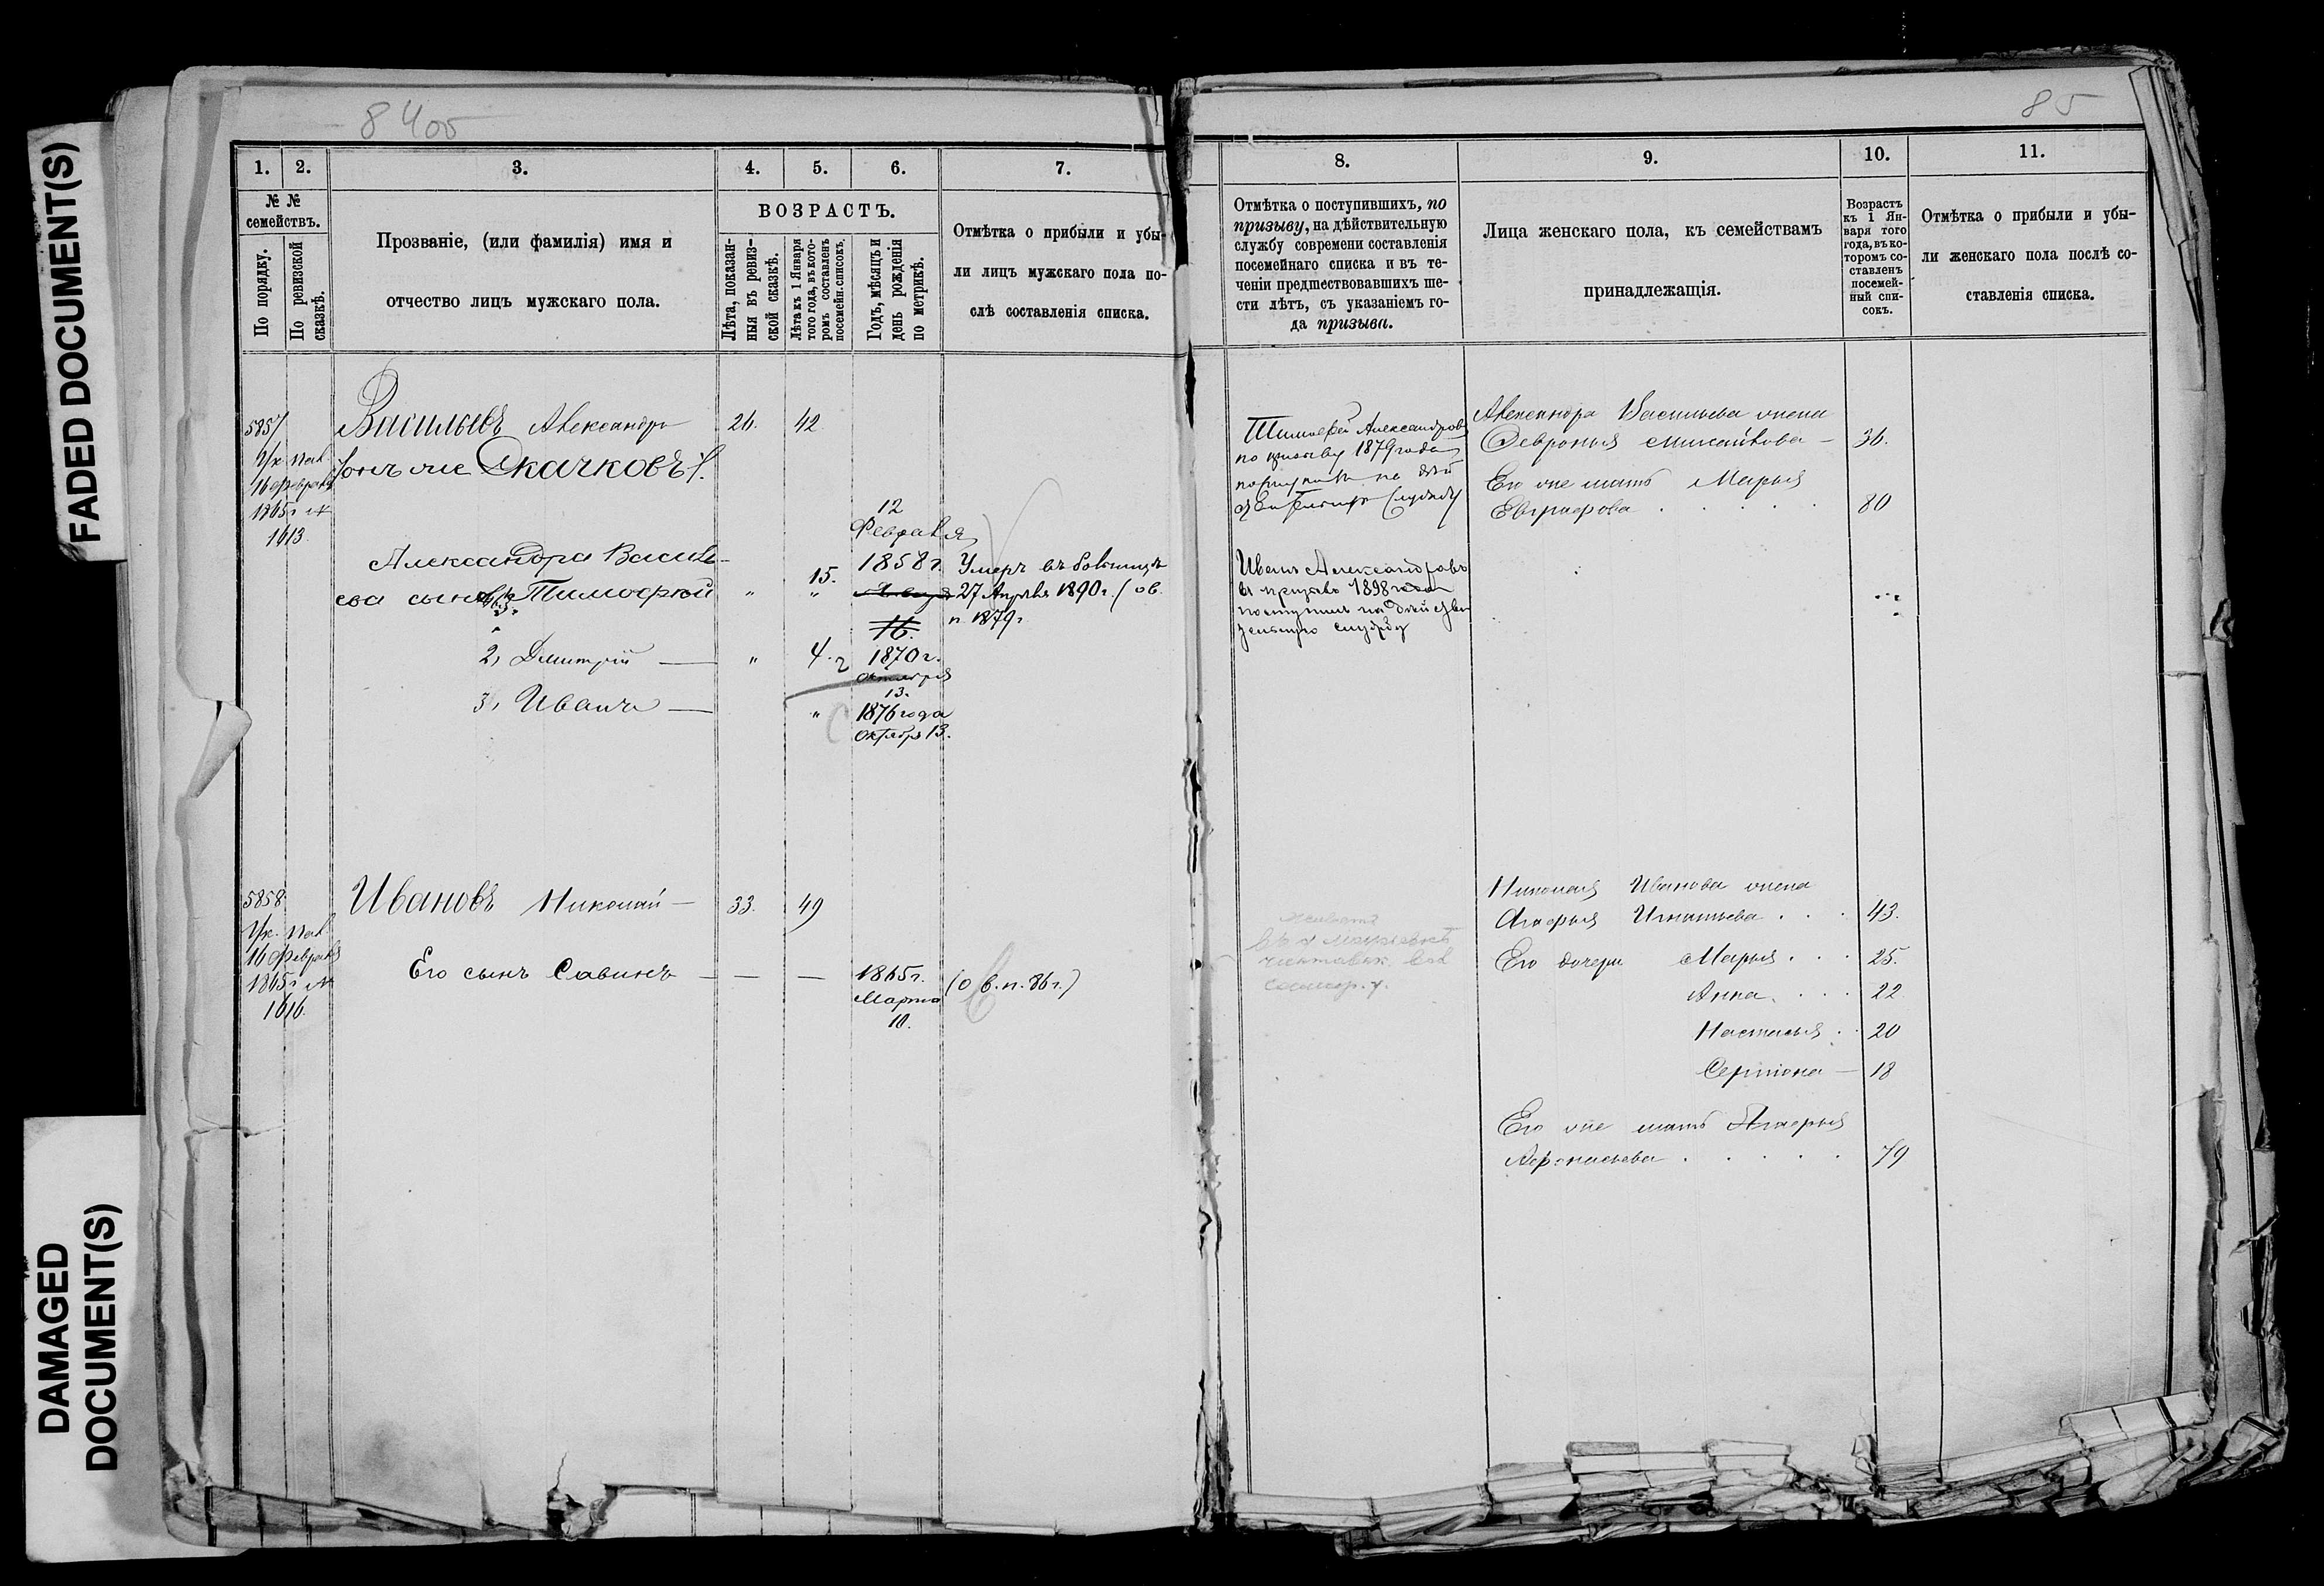 FADED DOCUMENT(S)
DAMAGED
DOCUMENT(S)
8405
1.
2.
3.
4.
5.
6.
7.
№ №
семействъ.
По порядку.
По ревизской
сказкѣ.
Прозваніе, (или фамилія) имя и
отчество лицъ мужскаго пола.
ВОЗРАСТЪ.
Лѣта, показан-
ныя въ ревиз-
ской сказкѣ.
Лѣта къ 1 Января
того года, въ кото-
ромъ составленъ
посемейн. списокъ.
Годъ, мѣсяцъ и
день рожденія
по метрикѣ.
Отмѣтка о прибыли и убы-
ли лицъ мужскаго пола по-
слѣ составленія списка.
5857
Васильевъ Александръ
26.
42
онъ же Скачковъ
16 Февраля
1865 г №
1613.
12
Февраля
1858 г.
Января
16.
Александра Василь-
ева сыновья Тимофей
"
15.
"
Умеръ въ больницѣ
27 Апрѣля 1890 г. (ов.
п. 1879 г
2, Дмитрій
"
4.
1870 г.
Октября
13.
3, Иванъ
"
1876 года
Октября 13.
5858
Ивановъ Николай
33.
49
16 Февраля
1865 г №
1616.
Его сынъ Савинъ
1865 г.
Марта
10.
(о в. п. 86 г.)
85
8.
9.
10.
11.
Отмѣтка о поступившихъ, по
призыву, на дѣйствительную
службу современи составленія
посемейнаго списка и въ те-
ченіи предшествовавшихъ ше-
сти лѣтъ, съ указаніемъ го-
да призыва.
Лица женскаго пола, къ семействамъ
принадлежащія.
Возрастъ
къ 1 Ян-
варя того
года, въ ко-
торомъ со-
ставленъ
посемей-
ный спи-
сокъ.
Отмѣтка о прибыли и убы-
ли женскаго пола послѣ со-
ставленія списка.
Тимофей Александровъ
по призыву 1879 года
поступилъ на дѣй
ствительную службу
Иванъ Александровъ
въ призывъ 1898 года
поступилъ на дѣйстви
тельную службу
Александра Васильева жена
Февронья Михайлова
36.
Его же мать Марья
Евграфова
80
Николая Иванова жена
Агафья Игнатьева
43.
Его дочери Марья
25.
Анна
22
Настасья
20
18
Его же мать Агафья
Афонасьева
79